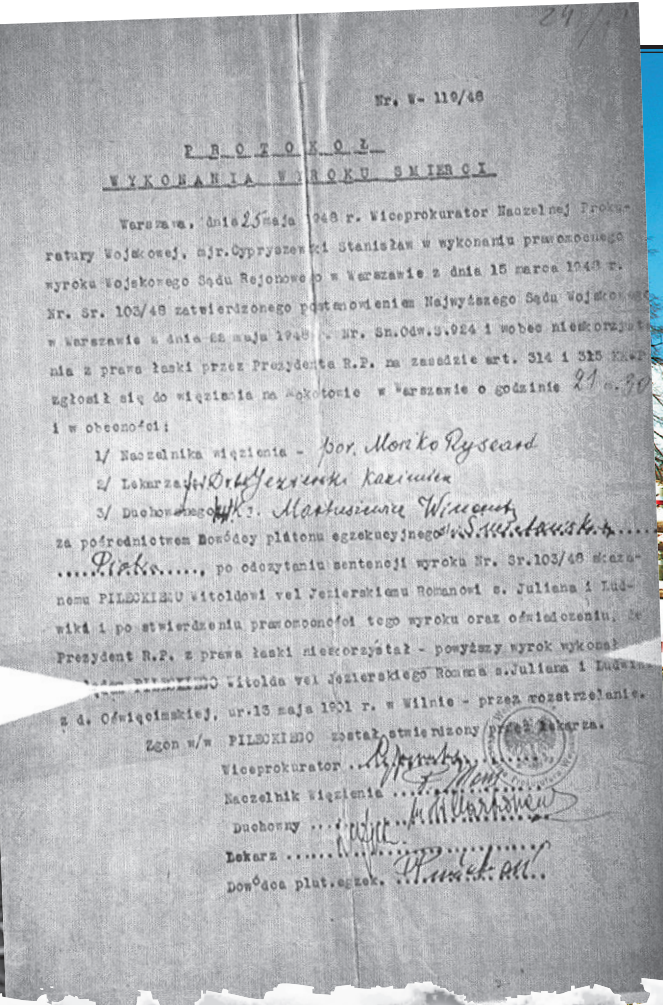 Nr. W- 119/48
P R O T O K O Ł
W Y K O N A N I A W Y R O K U Ś M I E R C I
Warszawa, dnia 25 maja 1948 r. Wiceprokurator Naczelnej Proku-
ratury Wojskowej, mjr. Cypryszewski Stanisław w wykonaniu prawomocnego
wyroku Wojskowego Sądu Rejonowego w Warszawie z dnia 15 marca 1948 r.
Nr. Sr. 103/48 zatwierdzonego postanowieniem Najwyższego Sądu Wojskowego
w Warszawie z dnia maja 1948 r. Nr. Sn.Odw.S.924 i wobec nieskorzysta
nia z prawa łaski przez Prezydenta R.P. na zasadzie art. 314 i 315
zgłosił się do więzienia na Mokotowie w Warszawie o godzinie 21 m. 30
i w obecności:
1/ Naczelnika więzienia - por. Mońko Ryszard
2/ Lekarza Dr Jezierski Kazimierz
3/ Duchownego Ks. Martusiewicz Wincenty
za pośrednictwem Dowódcy plutonu egzekucyjnego
Piotra....., po odczytaniu sentencji wyroku Nr. Sr.103/48 skaza-
nemu PILECKIEMU Witoldowi vel Jezierskiemu Romanowi s. Juliana i Lud-
wiki i po stwierdzeniu prawomocności tego wyroku oraz oświadczeniu, że
Prezydent R.P. z prawa łaski nieskorzystał - powyższy wyrok wykonał
PILECKIEGO Witolda vel Jezierskiego Romana s.Juliana i Ludwiki
z d. Oświęcimskiej, ur.13 maja 1901 r. w Wilnie - przez rozstrzelanie.
Zgon w/w PILECKIEGO został stwierdzony przez lekarza.
Wiceprokurator
Naczelnik Więzienia
Duchowny
Lekarz
Dowódca plut.egzek.